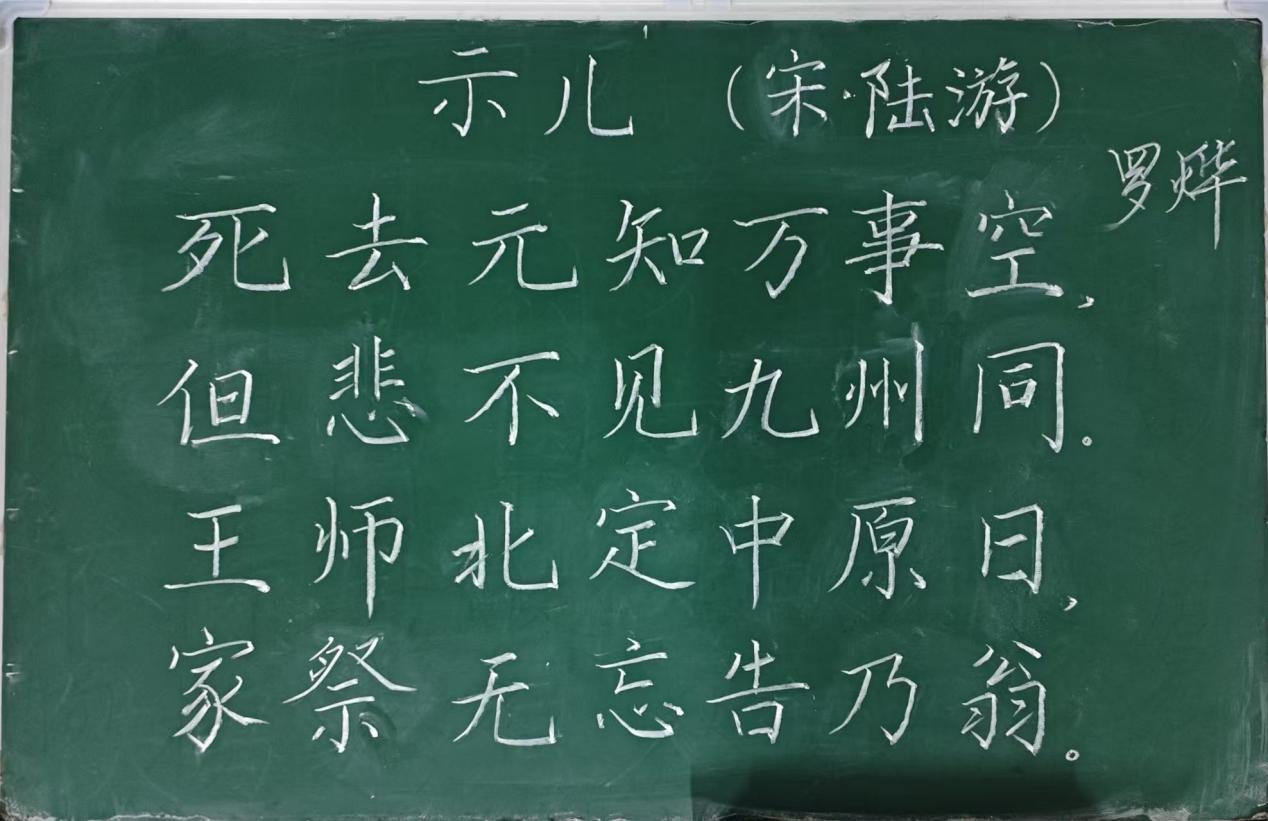 示儿 （宋·陆游）
罗烨
死去元知万事空，
但悲不见九州同。
王师北定中原日，
家祭无忘告乃翁。